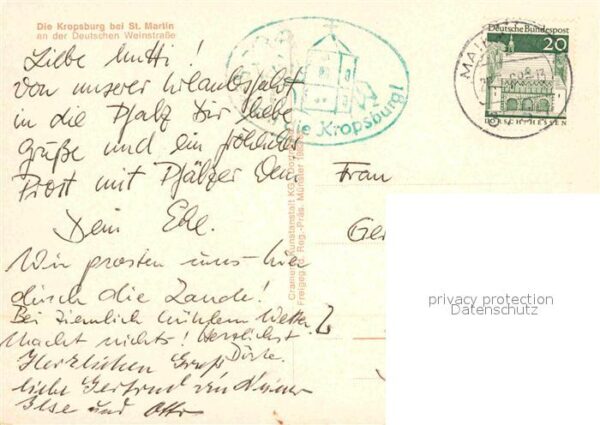 Die Kropsburg bei St. Martin
an der Deutschen Weinstraße
Liebe Mutti!
von unserer Urlaubsfahrt
in die Pfalz Dir liebe
Grüße und ein fröhliches
Prost mit Pfälzer
Dein
Wir prosten uns hier
durch die Lande!
Bei ziemlich kühlem Wetter.
Macht nichts! Herzlichst
Dörte.
Herzlichen Gruß
liebe Gertrud
Else und Otto
die Kropsburg!
Deutsche Bundespost
20
LORSCH·HESSEN
MAI
Frau
Ge
Cramers Kunstanstalt KG
Freigeg. d. Reg.-Präs. Münster
privacy protection
Datenschutz